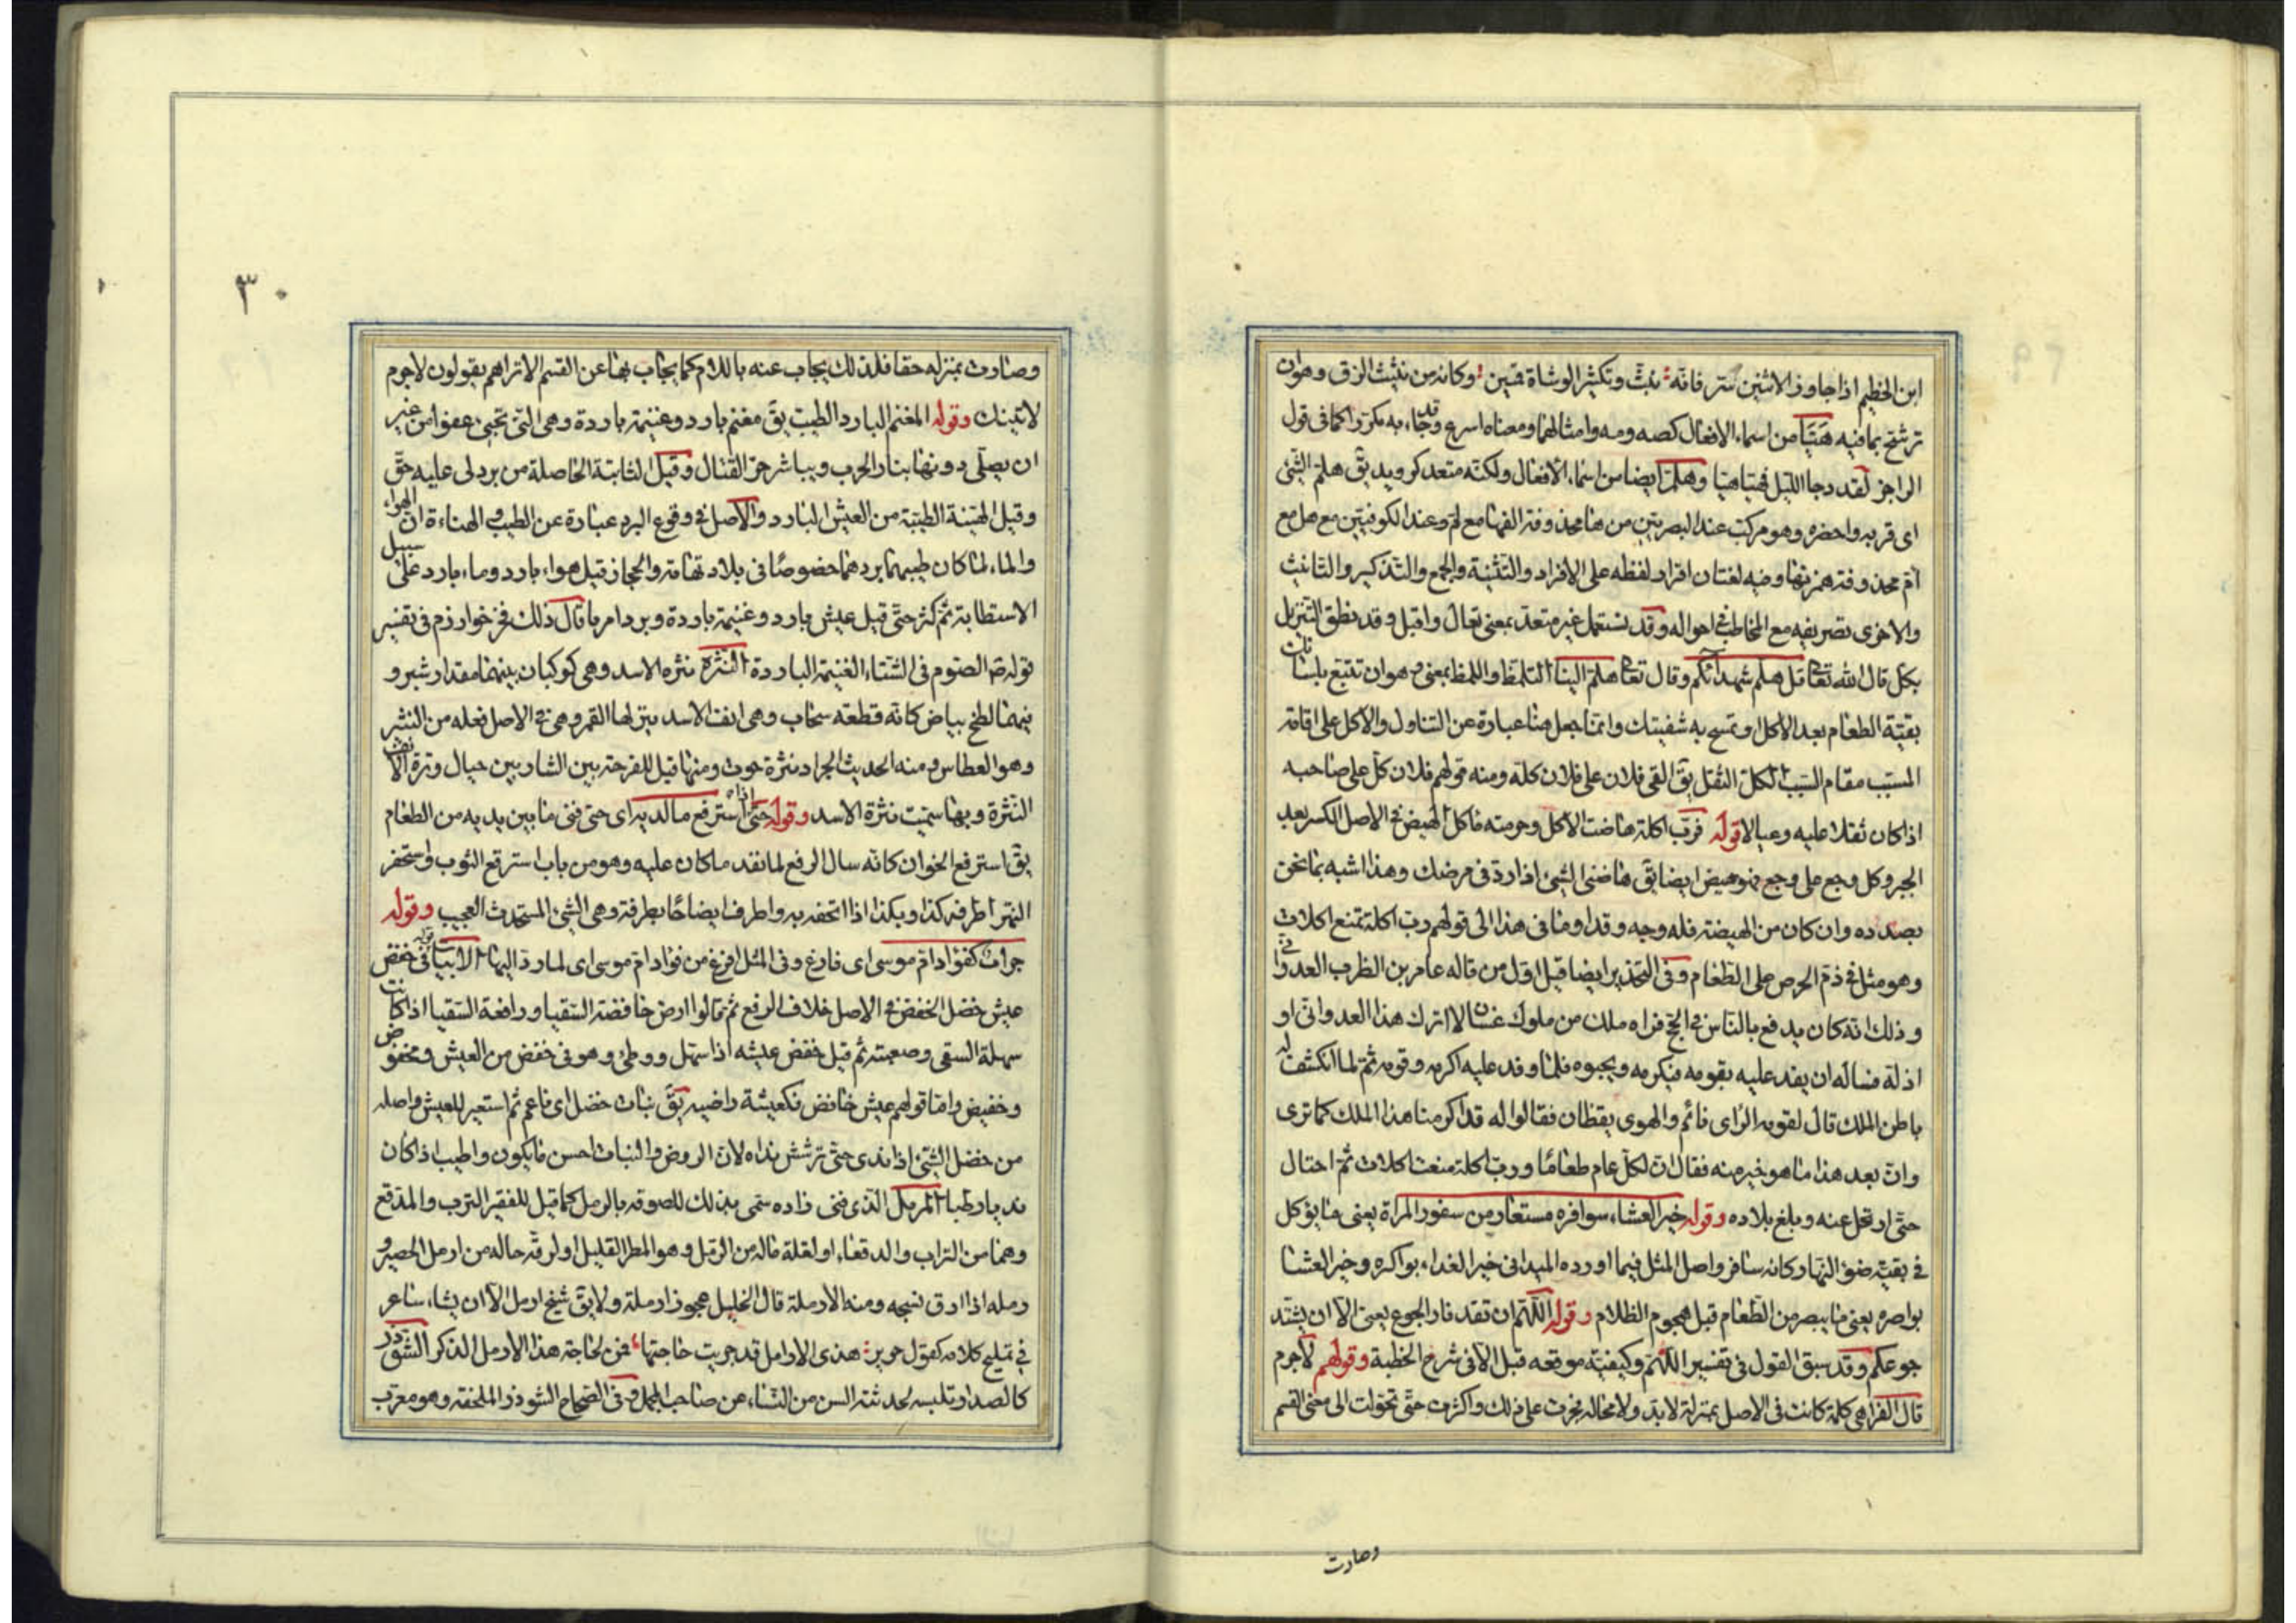 ابن الخطيم اذا جاوز الاثنين سر فانه بنث وتكثير الوشاة قمين وكانه من نثيث الزق وهو ان
ترشح بما فيه هَيَّا من اسماء الافعال كصه ومه وامثالهما ومعناه اسرع وقد جاء به مكررا كما فى قول
الراجز لقد دجا الليل فهيا هيا وهلم ايضا من اسماء الافعال ولكنه متعد كرويد يق هلم الشئ
اى قربه واحضره وهو مركب عند البصريين من ها محذوفة الفها مع لم وعند الكوفيين مع هل مع
ام محذوفة همزتها وفيه لغتان افراد لفظه على الافراد والتثنية والجمع والتذكير والتانيث
والاخرى تصريفه مع المخاطب فى احواله وقد تستعمل غير متعد بمعنى تعال واقبل وقد نطق التنزيل
بكل قال الله تعا قل هلم شهدائكم وقال تعا هلم الينا التلمظ واللمظ بمعنى وهو ان تتتبع بلسانك
بقية الطعام بعد الاكل او تمسح به شفتيك وانما جعل هنا عبارة عن التناول والاكل على اقامة
المسبب مقام السبب الكل الثقل يق القى فلان على فلان كله ومنه قولهم فلان كل على صاحبه
اذا كان ثقلا عليه وعيالا قوله فرب اكلة هاضت الاكل وحرمته مآكل الهيض فى الاصل الكسر بعد
الجبر وكل وجع على وجع فهو هيض ايضا يق هاضنى الشئ اذا ردك فى مرضك وهذا اشبه بما نحن
بصدده وان كان من الهيضة فله وجه وقد اوما فى هذا الى قولهم رب اكلة تمنع اكلات
وهو مثل فى ذم الحرص على الطعام وفى التحذير ايضا قيل اول من قاله عامر بن الظرب العدوانى
وذلك انه كان يدفع بالناس فى الحج فراه ملك من ملوك غسان لا اترك هذا العدوانى او
اذله فساله ان يفد عليه بقومه فيكرمه ويحبوه فلما وفد عليه اكرمه وقومه ثم لما انكشف له
باطن الملك قال لقومه الراى نائم والهوى يقظان فقالوا له قد اكرمنا هذا الملك كما ترى
وان بعد هذا ما هو خير منه فقال ان لكل عام طعاما ورب اكلة منعت اكلات ثم احتال
حتى ارتحل عنه وبلغ بلاده وقوله خير العشاء سوافره مستعار من سفور المراة يعنى ما يؤكل
فى بقية ضوء النهار وكانه سافر واصل المثل فيما اورده الميدانى خير الغداء بواكره وخير العشا
بواصره يعنى ما يبصر من الطعام قبل هجوم الظلام وقوله اللهم ان تقد نار الجوع يعنى الا ان يشتد
جوعكم وقد سبق القول فى تفسير اللهم وكيفية موقعه قبل الا فى شرح الخطبة وقولهم لاجرم
قال الفرا هى كلمة كانت فى الاصل بمنزلة لابد ولا محالة فجرت على ذلك واكثرت حتى تحولت الى معنى القسم
وصارت
٣٠
وصارت بمنزله حقا فلذلك يجاب عنه باللام كما يجاب بها عن القسم الا تراهم يقولون لاجرم
لاتينك وقوله المغنم البارد الطيب يق مغنم بارد وغنيمة باردة وهى التى تجئ عفوا من غير
ان يصلى دونها بنار الحرب ويباشر حر القتال وقيل الثابتة الحاصلة من برد لى عليه حق
وقيل الهنيئة الطيبة من العيش البارد والاصل فى وقوع البرد عبارة عن الطيب والهناءة ان الهواء
والماء لما كان طيبهما بردهما خصوصا فى بلاد تهامة والحجاز قيل هواء بارد وماء بارد على سبيل
الاستطابة ثم كثر حتى قيل عيش بارد وغنيمة باردة وبرد امرنا قال ذلك فخر خوارزم فى تفسير
قوله ص الصوم فى الشتاء الغنيمة الباردة النثرة نثرة الاسد وهى كوكبان بينهما مقدار شبر و
فيهما لطخ بياض كانه قطعة سحاب وهى انف الاسد ينزلها القمر وهى فى الاصل فعله من النثر
وهو العطاس ومنه الحديث الجراد نثرة حوت ومنها قيل للفرجة بين الشاربين حيال وترة الانف
النثرة وبها سميت نثرة الاسد وقوله حتى اذا استرفع ما لديه اى حتى فنى ما بين يديه من الطعام
يق استرفع الخوان كانه سال الرفع لما نفد ما كان عليه وهو من باب استرقع الثوب واستحفر
النهر اطرفه كذا وبكذا اذا اتحفه به واطرف ايضا جا بطرفة وهى الشئ المستحدث العجيب وقوله
جراب كفؤاد ام موسى اى فارغ وفى المثل افرغ من فؤاد ام موسى اى لما رد اليها الابيات قوله فى خفض
عيش خضل الخفض فى الاصل خلاف الرفع ثم قالوا ارض خافضة السقيا ورافعة السقيا اذا كانت
سهلة السقى وصعبته ثم قيل خفض عيشه اذا سهل ووطئ وهو فى خفض من العيش ومخفوض
وخفيض واما قولهم عيش خافض فكعيشة راضيه يق نبات خضل اى ناعم ثم استعير للعيش واصله
من خضل الشئ اذا ندى حتى ترشش نداه لان الروض والنبات احسن ما يكون واطيب اذا كان
نديا رطبا المرمل الذى فنى زاده سمى بذلك للصوقه بالرمل كما قيل للفقير الترب والمدقع
وهما من التراب والدقعاء او لقلة ماله من الرمل وهو المطر القليل او لرقة حاله من ارمل الحصير و
رمله اذا ادق نسجه ومنه الارملة قال الخليل عجوز ارملة ولا يق شيخ ارمل الا ان يشاء شاعر
فى تمليح كلامه كقول جرير هذى الارامل قد جريت حاجتها فمن لحاجة هذا الارمل الذكر الشوذر
كالصدار تلبسه لحدثته السن من النساء عن صاحب المجمل وفى الصحاح الشوذر الملحفة وهو معرب